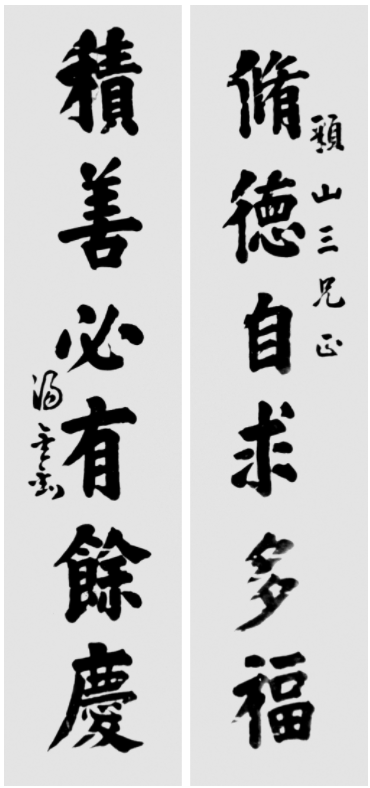 山三兄正
脩德自求多福
積善必有餘慶
湯金釗